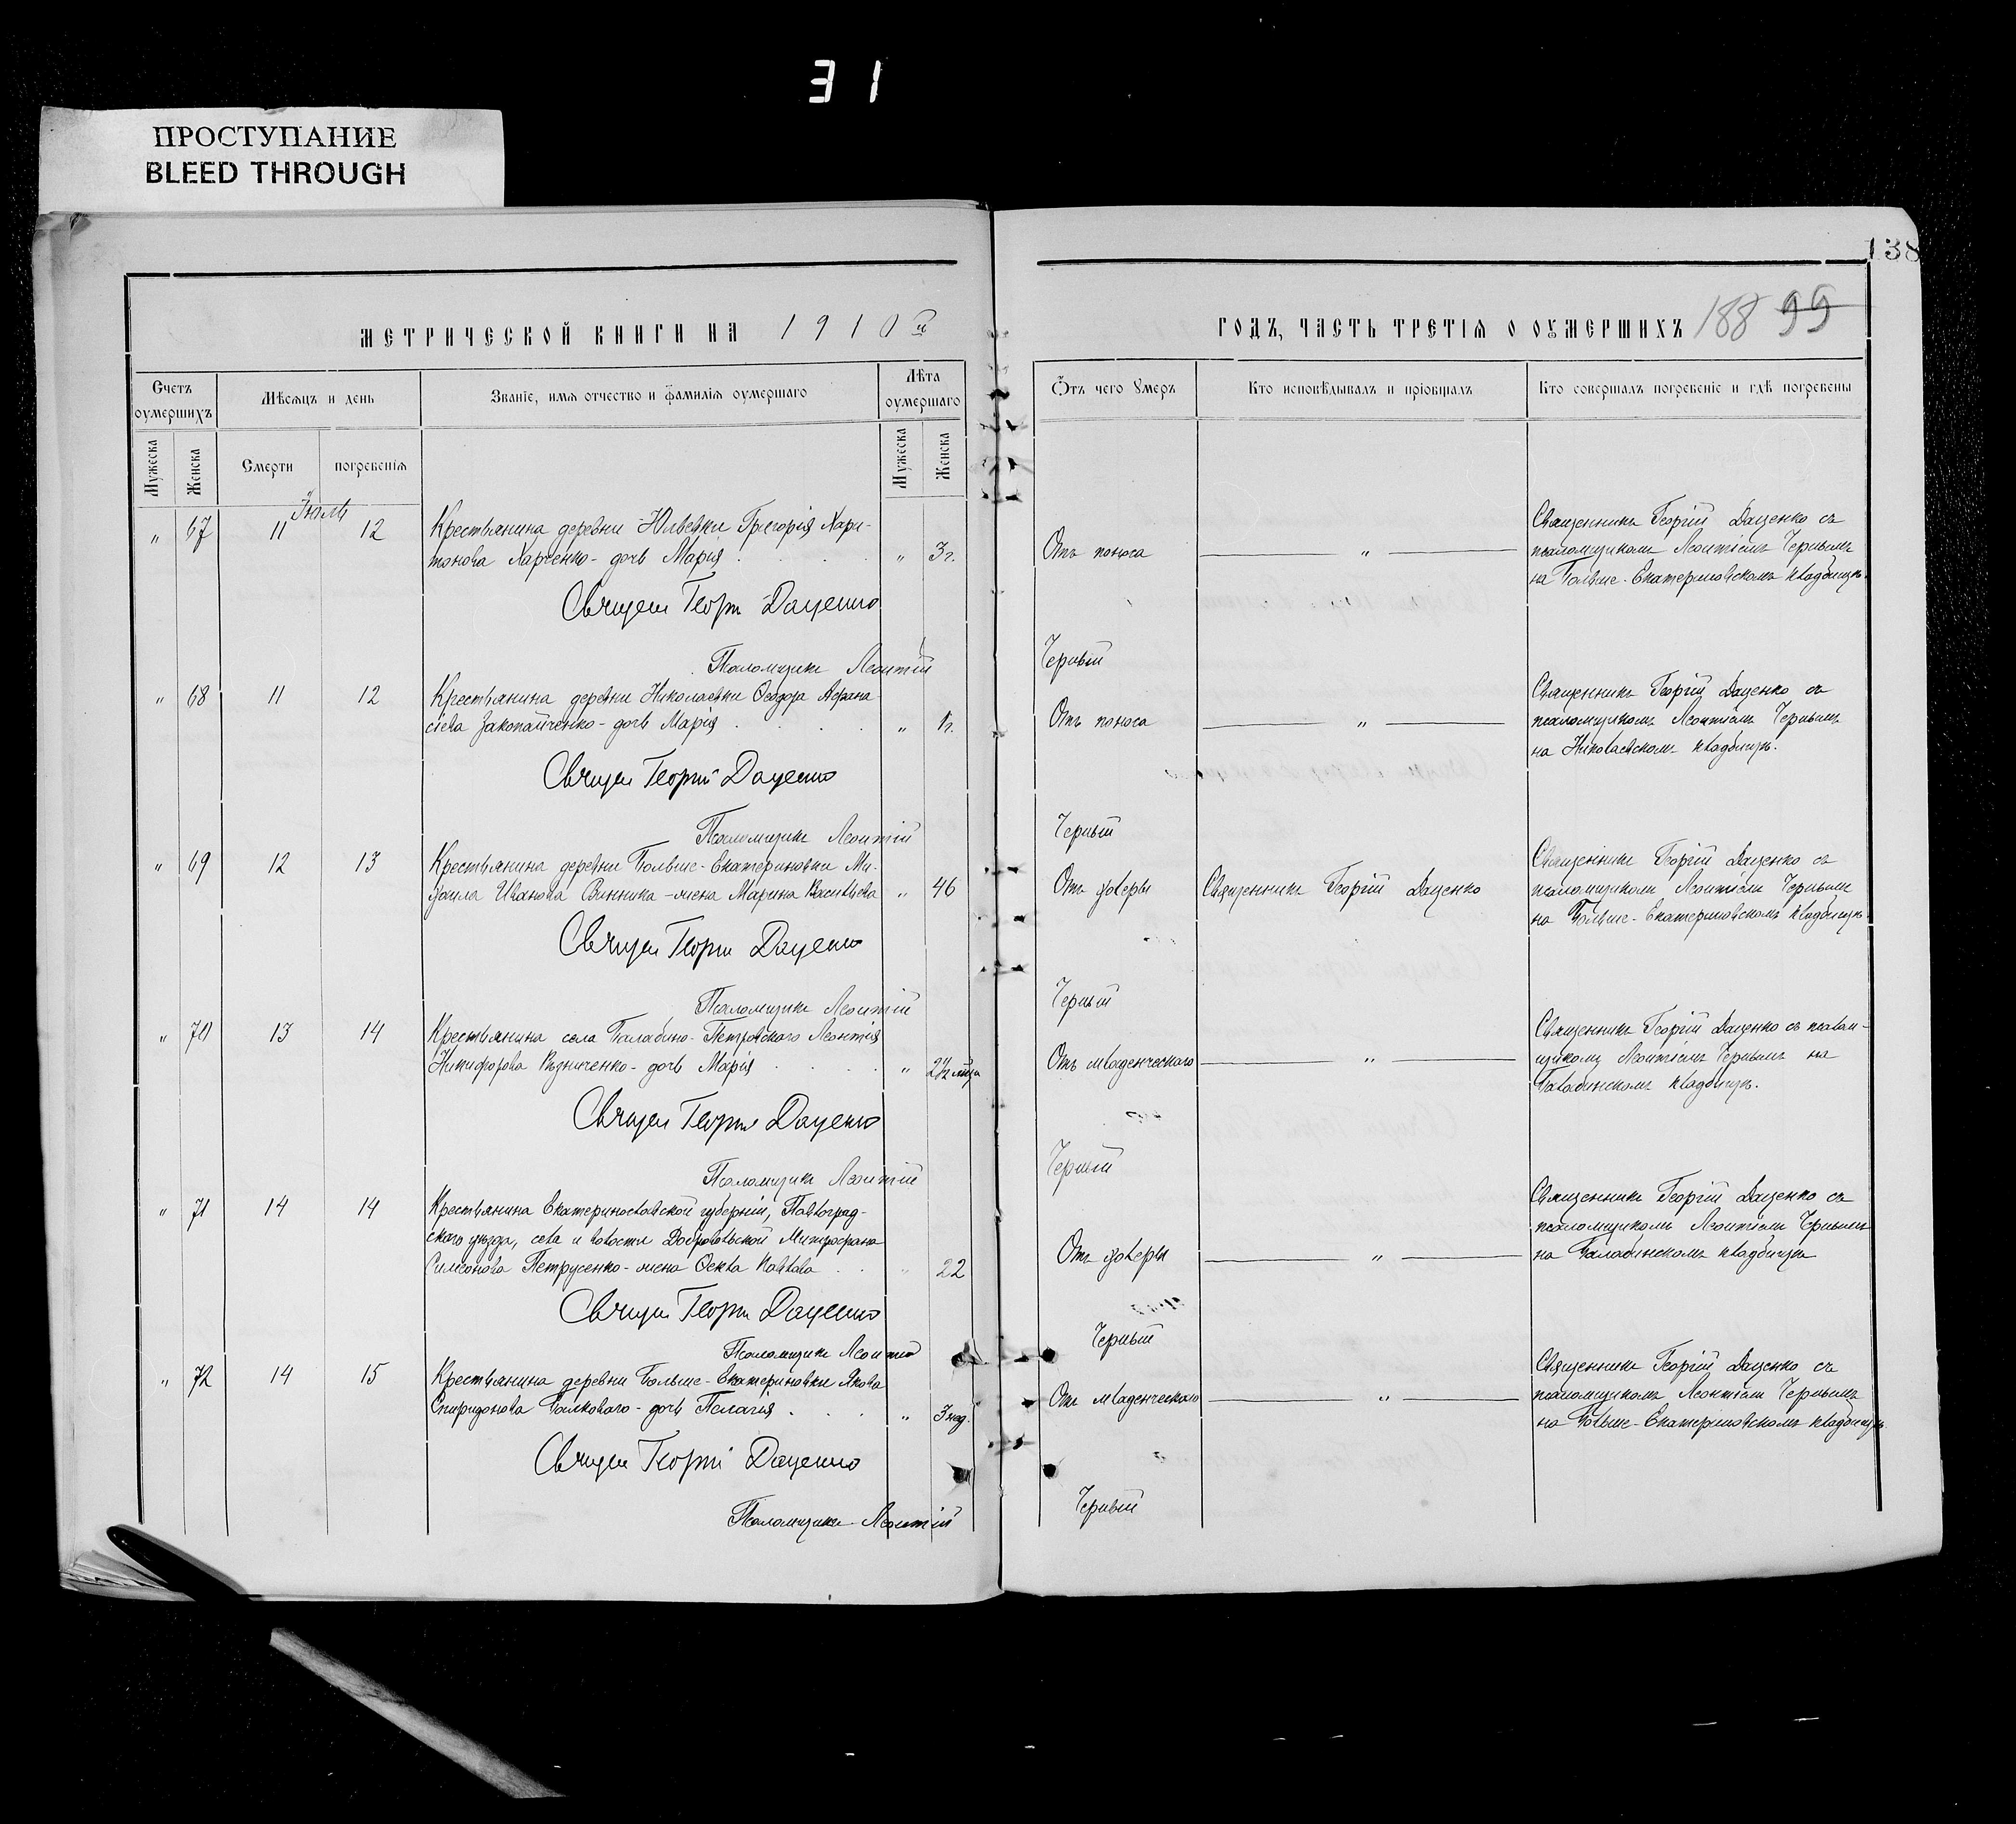 31
ПРОСТУПАНИЕ
BLEED THROUGH
138
МЕТРИЧЕСКОЙ КНИГИ НА 1910й
ГОДЪ, ЧАСТЬ ТРЕТІЯ О ОУМЕРШИХЪ 188 99
Счетъ оумершихъ
Мѣсяцъ и день
Званіе, имя отчество и фамилія оумершаго
Лѣта оумершаго
Отъ чего умеръ
Кто исповѣдывалъ и пріобщалъ
Кто совершалъ погребеніе и гдѣ погребены
Мужеска
Женска
Смерти
погребенія
Мужеска
Женска
Іюль
" 67 11 12 Крестьянина деревни Юльевки Григорія Хари-
тонова Харченко - дочь Марія . . . . " 3 г.
Отъ поноса "
Священникъ Георгій Даценко съ
псаломщикомъ Леонтіемъ Чернымъ
на Больше-Екатериновскомъ кладбищѣ.
Священ Георгій Даценко
Псаломщикъ Леонтій Черный
" 68 11 12 Крестьянина деревни Николаевки Ѳеодора Афана
сіева Закопайченко - дочь Марія . . . . " 1г.
Отъ поноса "
Священникъ Георгій Даценко съ
псаломщикомъ Леонтіемъ Чернымъ
на Николаевскомъ кладбищѣ.
Священ Георгій Даценко
Псаломщикъ Леонтій Черный
" 69 12 13 Крестьянина деревни Больше-Екатериновки Ми-
хаила Иванова Винника - жена Марина Васильева " 46
Отъ холеры Священникъ Георгій Даценко
Священникъ Георгій Даценко съ
псаломщикомъ Леонтіемъ Чернымъ
на Больше-Екатериновскомъ кладбищѣ.
Священ Георгій Даценко
Псаломщикъ Леонтій Черный
" 70 13 14 Крестьянина села Балабино-Петровского Леонтія
Никифорова - дочь Марія . . . . " 2½ мѣся
Отъ младенческаго "
Священникъ Георгій Даценко съ псалом-
щикомъ Леонтіемъ Чернымъ на
Балабинскомъ кладбищѣ.
Священ Георгій Даценко
Псаломщикъ Леонтій Черный
" 71 14 14 Крестьянина Екатеринославской губерніи, Павлоград-
скаго уѣзда, села и волости Добровольской Митрофана
Симеонова Петрусенко - жена Ѳекла Павлова . . " 22
Отъ холеры "
Священникъ Георгій Даценко съ
псаломщикомъ Леонтіемъ Чернымъ
на Балабинскомъ кладбищѣ
Священ Георгій Даценко
Псаломщикъ Леонтій Черный
" 72 14 15 Крестьянина деревни Больше-Екатериновки Якова
Спиридонова - дочь Пелагія . . . " 3 нед.
Отъ младенческаго "
Священникъ Георгій Даценко съ
псаломщикомъ Леонтіемъ Чернымъ
на Больше-Екатериновскомъ кладбищѣ
Священ Георгій Даценко
Псаломщикъ Леонтій Черный